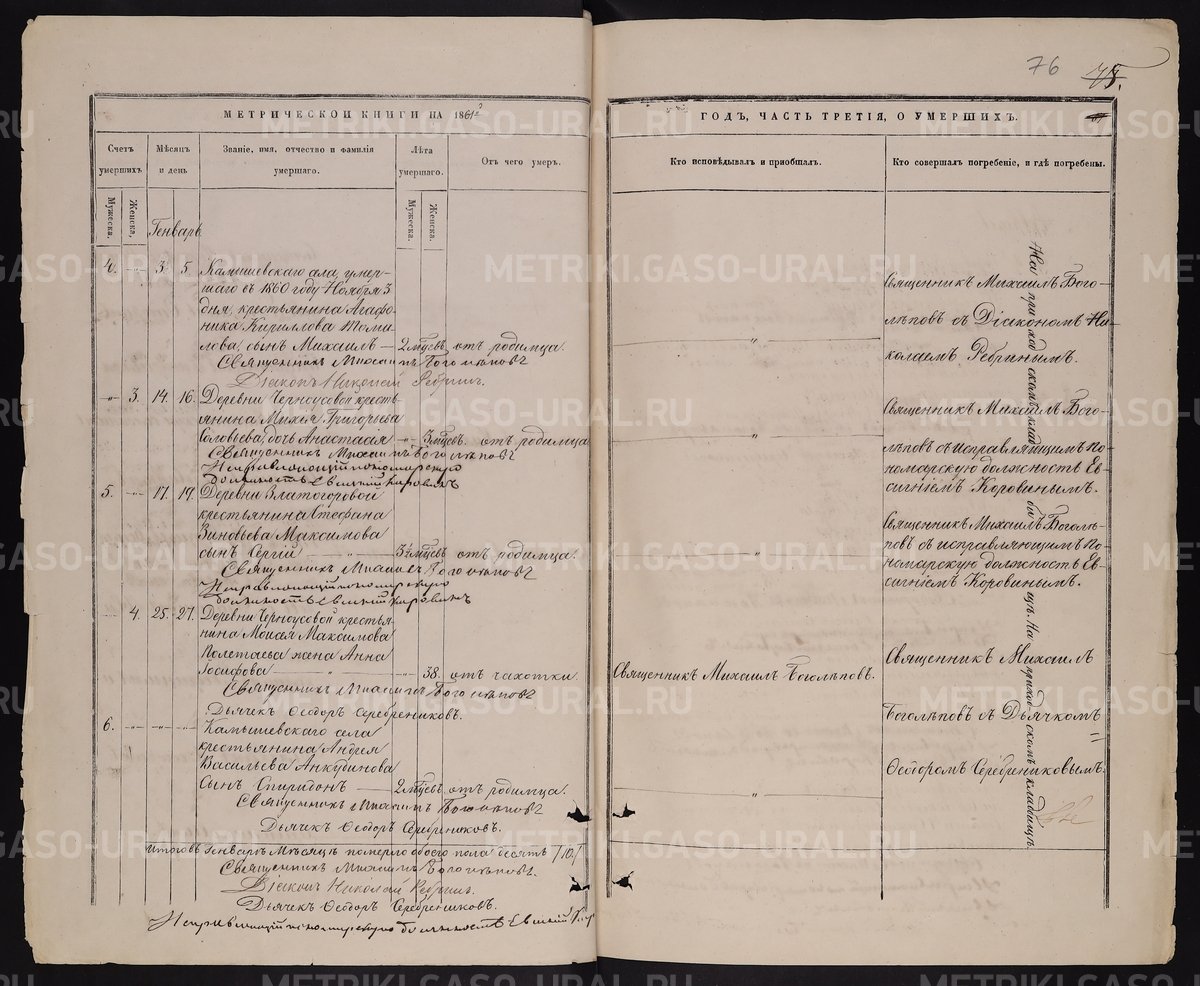 76
МЕТРИЧЕСКОЙ КНИГИ НА 1861й
ГОДЪ, ЧАСТЬ ТРЕТІЯ, О УМЕРШИХЪ.
Счетъ умершихъ
Мѣсяцъ и день
Званіе, имя, отчество и фамилія умершаго.
Лѣта умершаго.
Отъ чего умеръ.
Кто исповѣдывалъ и пріобщалъ.
Кто совершалъ погребеніе, и гдѣ погребены.
Мужеска.
Женска,
Мужеска.
Женска.
Генварь
4. 3. 5. Камышевскаго села, умер-
шаго въ 1860 году Ноября 3
дня, крестьянина Агафо-
ника Кириллова Томи-
лова, сынъ Михаилъ — 2 мѣсев. отъ родимца.
Священникъ Михаилъ Боголѣповъ
Діаконъ Николай Ребринъ.
Священникъ Михаилъ Бого-
лѣповъ съ Діакономъ Ни-
колаемъ Ребринымъ.
3. 14. 16. Деревни Черноусовой кресть-
янина Михея Григорьева
Соловьева, дочь Анастасія 3 мѣсев. отъ родимца
Священникъ Михаилъ Боголѣповъ
Исправляющій пономарскую
должность Евсигній Коровинъ
Священникъ Михаилъ Бого-
лѣповъ съ исправляющимъ по-
номарскую должность Ев-
сигніемъ Коровинымъ.
5. 17. 19. Деревни Златогоровой
крестьянина Стефана
Зиновьева Максимова
сынъ Сергій — 3½ мѣсев. отъ родимца.
Священникъ Михаилъ Боголѣповъ
Исправляющій пономарскую
должность Евсигній Коровинъ
Священникъ Михаилъ Боголѣ-
повъ съ исправляющимъ по-
номарскую должность Ев-
сигніемъ Коровинымъ.
4. 25. 27. Деревни Черноусовой крестья-
нина Моисея Максимова
Полетаева жена Анна
Іосифова — 38. отъ чахотки.
Священникъ Михаилъ Боголѣповъ
Дьячекъ Ѳеодоръ Серебрениковъ.
Священникъ Михаилъ Боголѣповъ.
Священникъ Михаилъ
Боголѣповъ съ Дьячкомъ
Ѳеодоромъ Серебрениковымъ.
6. Камышевскаго села
крестьянина Андрея
Васильева Анкудинова
сынъ Спиридонъ — 2 мѣсев. отъ родимца.
Священникъ Михаилъ Боголѣповъ
Дьячекъ Ѳеодоръ Серебрениковъ.
На приходскомъ кладбищѣ. На приходскомъ кладбищѣ.
Итого въ Генварѣ Мѣсяцѣ померло обоего пола десять /10./
Священникъ Михаилъ Боголѣповъ.
Діаконъ Николай Ребринъ.
Дьячекъ Ѳеодоръ Серебрениковъ.
Исправляющій пономарскую должность Евсигній Кор
METRIKI.GASO-URAL.RU